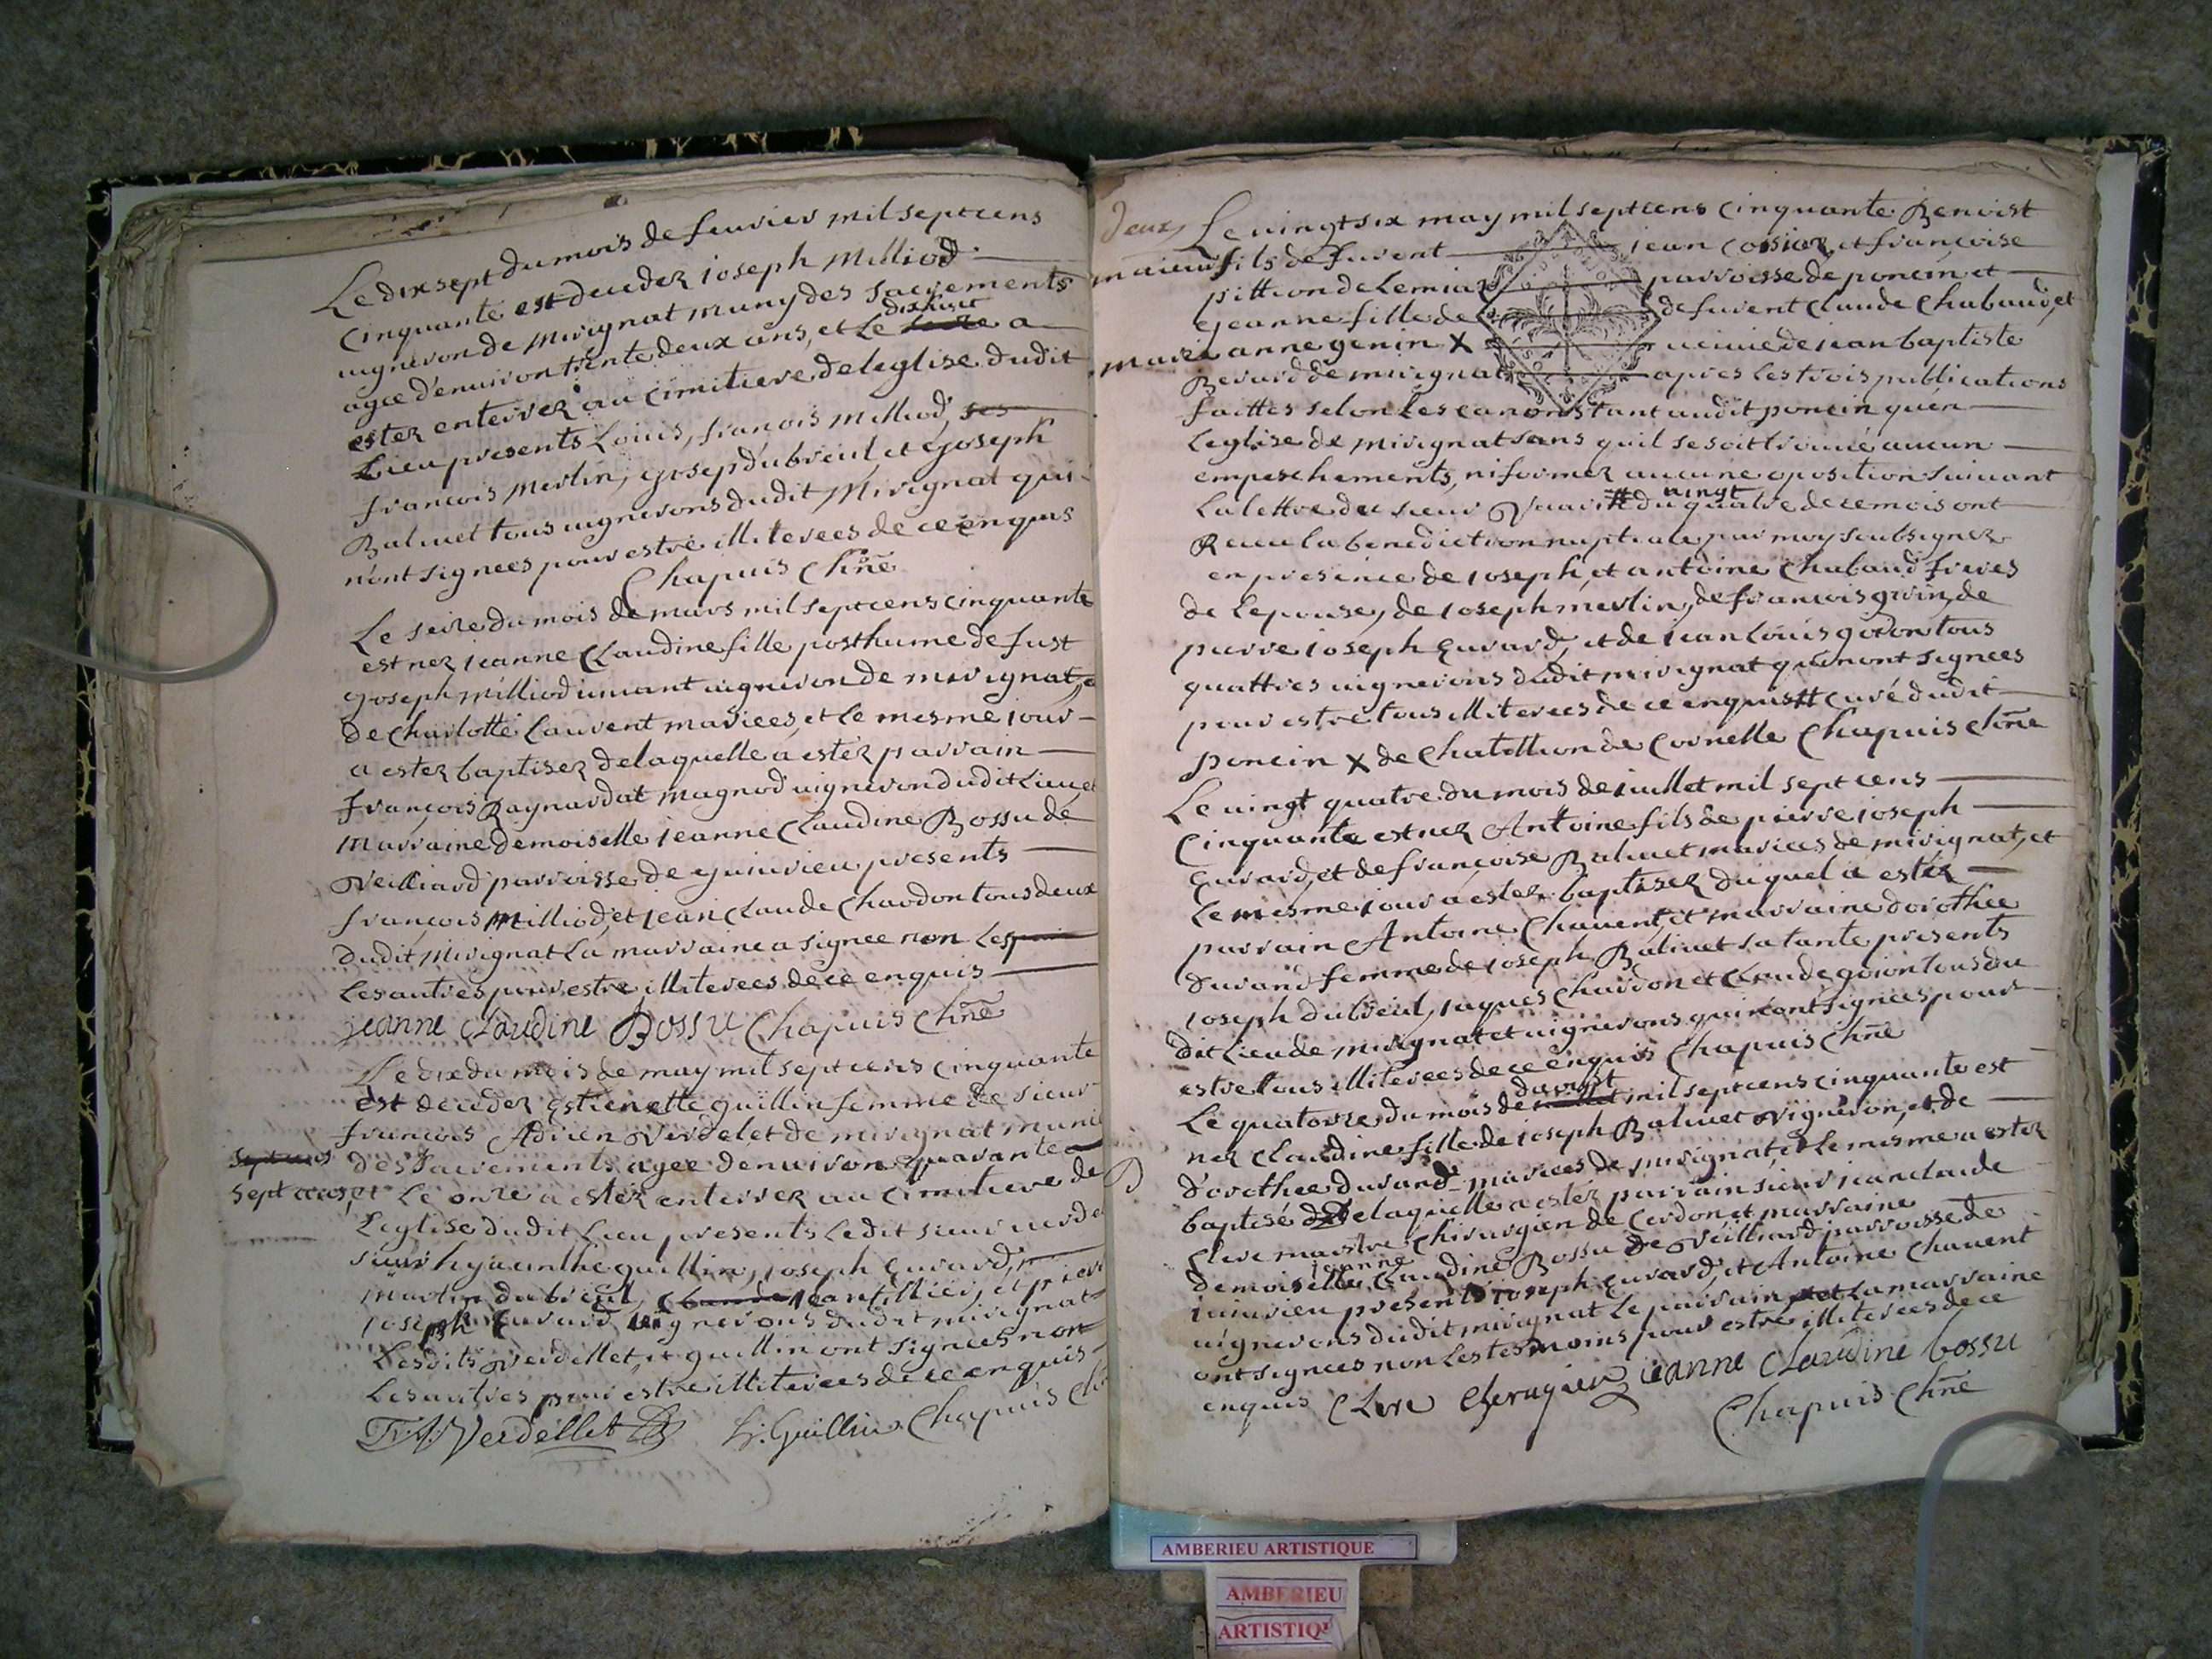 Le dix sept du mois de feuvrier mil sept cens
cinquante est deceder ioseph Milliod
uigneron de Mirignat muny des sacrements
dixhuit
agee d'enuiron trente deux ans, et Le a
ester enterrer au cimitiere de leglise dudit
Lieu presents Loüis, francois Milliod,
francois Merlin, josep dubreul et joseph
Baliuet tous uignerons dudit Mirignat qui
n'ont signees pour estre illiterees de ce enquis
Chapuis Chñe
Le seize du mois de mars mil sept cens cinquante
est nez jeanne Claudine fille posthume de fust
joseph Milliod uiuant uigneron de mirignat, e
de Charlotte Laurent mariees, et le mesme iour
a ester baptisez de laquelle a ester parrain
francois Raynard at magnod uigneron dudit Lieu et
marraine demoiselle jeanne Claudine Bossu de
Veilliard parroisse de jujurieu presents
francois Milliod, et jean Claude Chardon tous deux
dudit Mirignat La marraine a signee non Les
Les autres pour estre illiterees de ce enquis
jeanne claudine Bossu Chapuis Chñe
Le dix du mois de may mil sept cens cinquante
est deceder Estienette guillin femme de sieur
francois Adrien Verdelet de mirignat munie
des sacrements agee denuiron quarante
sept ans, et Le onze a ester enterrer au cimitiere de
Leglise dudit Lieu presents Ledit sieur uerde
sieur hyacinthe guillin, joseph Euvard,
martin dubreul, jean tillier, et pierr
joseph Euvard uignerons dudit mirignat
Lesdits Verdellet, et guillin ont signees non
Les autres pour estre illiterees de ce enquis
F. A. Verdellet h. Guillin Chapuis Ch
deux Le uingt six may mil sept cens cinquante Benoist
maieur fils de furent jean Cossiaz et francoise
pittion de Lemiaz parroisse de poncin et
jeanne fille de defurent Claude Chabaud, et
marie anne genin X ueuue de jean baptiste
Berard de mirignat apres les trois publications
faittes selon les canons tant audit poncin quen
Leglise de Mirignat sans quil se soit trouué aucun
empeschements, ni former aucune oposition suiuant
uingt
La lettre du sieur # du quatre de ce mois ont
Receu la benediction nuptiale par moy soubsignez
en presence de ioseph, et antoine Chabaud freres
de Lepouse, de ioseph merlin, de francois, de
pierre ioseph Euvard, et de jean Loüis goion tous
quattres uignerons dudit mirignat qui nont signees
pour estre tous illiterees de ce enquis # curé dudit
poncin X de Chatillion de Cornelle Chapuis Chñe
Le uingt quatre du mois de iuillet mil sept cens
cinquante est nez Antoine fils de pierre ioseph
Euvard, et de francoise Baliuet mariees de mirignat, et
Le mesme iour a ester baptisez duquel a ester
parrain Antoine Chauent, et marraine dorothee
durand femme de ioseph Baliuet sa tante presents
ioseph dubreul, jaques Chardon et Claude goion tous du
dit Lieu de mirignat et uignerons qui nont signees pour
estre tous illiterees de ce enquis Chapuis Chñe
Le quatorze du mois de mil sept cens cinquante est
nez Claudine fille de ioseph Baliuet Vigneron, et de
dorothee durand mariees de mirignat, et Le mesme a ester
baptisé de laquelle a ester parrain sieur jean claude
Clere maistre Chirurgien de Cerdon et marraine
jeanne
demoiselle Claudine Bossu de Veilliard parroisse de
iuiurieu presents ioseph Euvard, et Antoine Chauent
uignerons dudit mirignat Le parrain et La marraine
ont signees non Les tesmoins pour estre illiterees de ce
enquis jeanne Claudine bossu
Chapuis Chñe
AMBERIEU ARTISTIQUE
AMBERIEU
ARTISTIQU